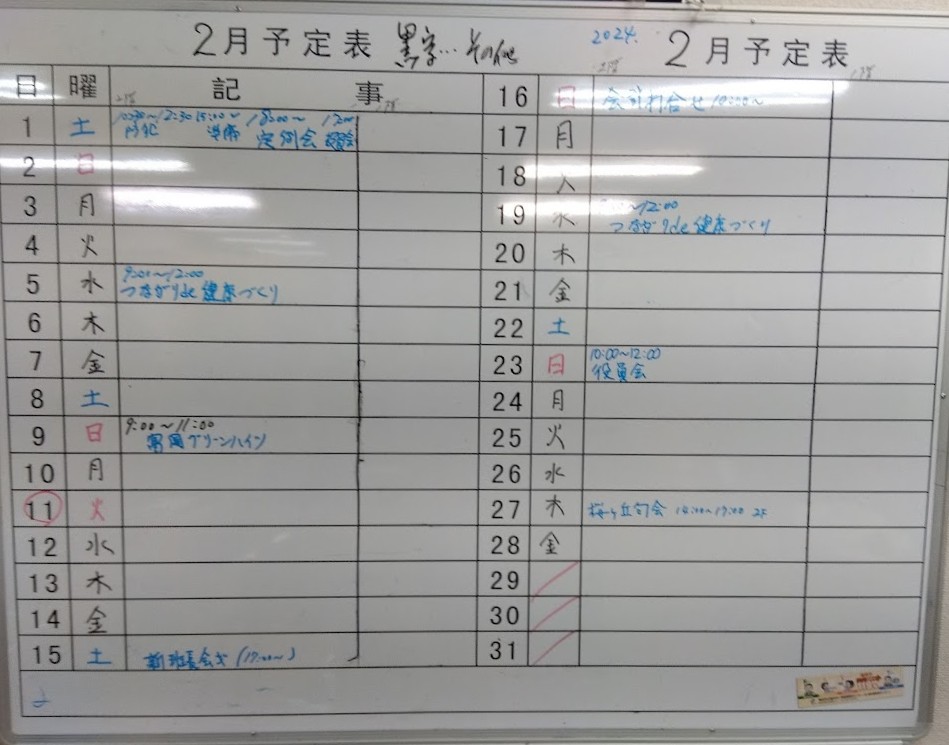 2月予定表 黒字…その他
日 曜 記 事
2階 1階
1 土 12:30 15:00~ 18:00~
準備 定例会
2 日
3 月
4 火
5 水 9:00~12:00
つながりde健康づくり
6 木
7 金
8 土
9 日 9:00~11:00
富岡グリーンハイツ
10 月
11 火
12 水
13 木
14 金
15 土 新班長会 (19:00~)
2024. 2月予定表
2階 1階
16 日 合せ 10:00~
17 月
18 火
19 水 ~12:00
つながりde健康づくり
20 木
21 金
22 土
23 日 10:00~12:00
役員会
24 月
25 火
26 水
27 木 桜ヶ丘句会 14:00~17:00 2F
28 金
29
30
31